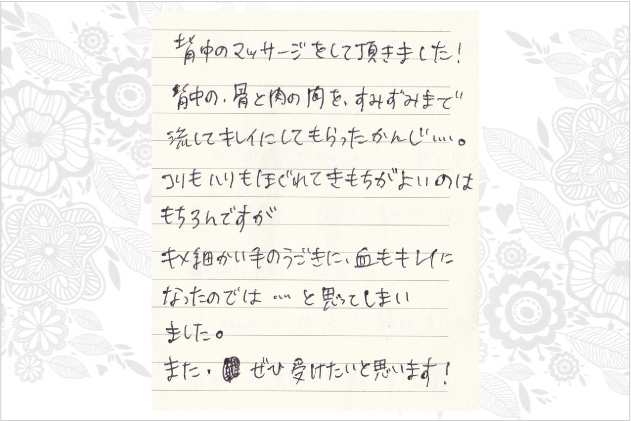 背中のマッサージをして頂きました!
背中の、骨と肉の間を、すみずみまで
流してキレイにしてもらったかんじ‥‥。
コリもハリもほぐれてきもちがよいのは
もちろんですが
キメ細かい手のうごきに、血もキレイに
なったのでは‥‥と思ってしまい
ました。
また、ぜひ受けたいと思います!